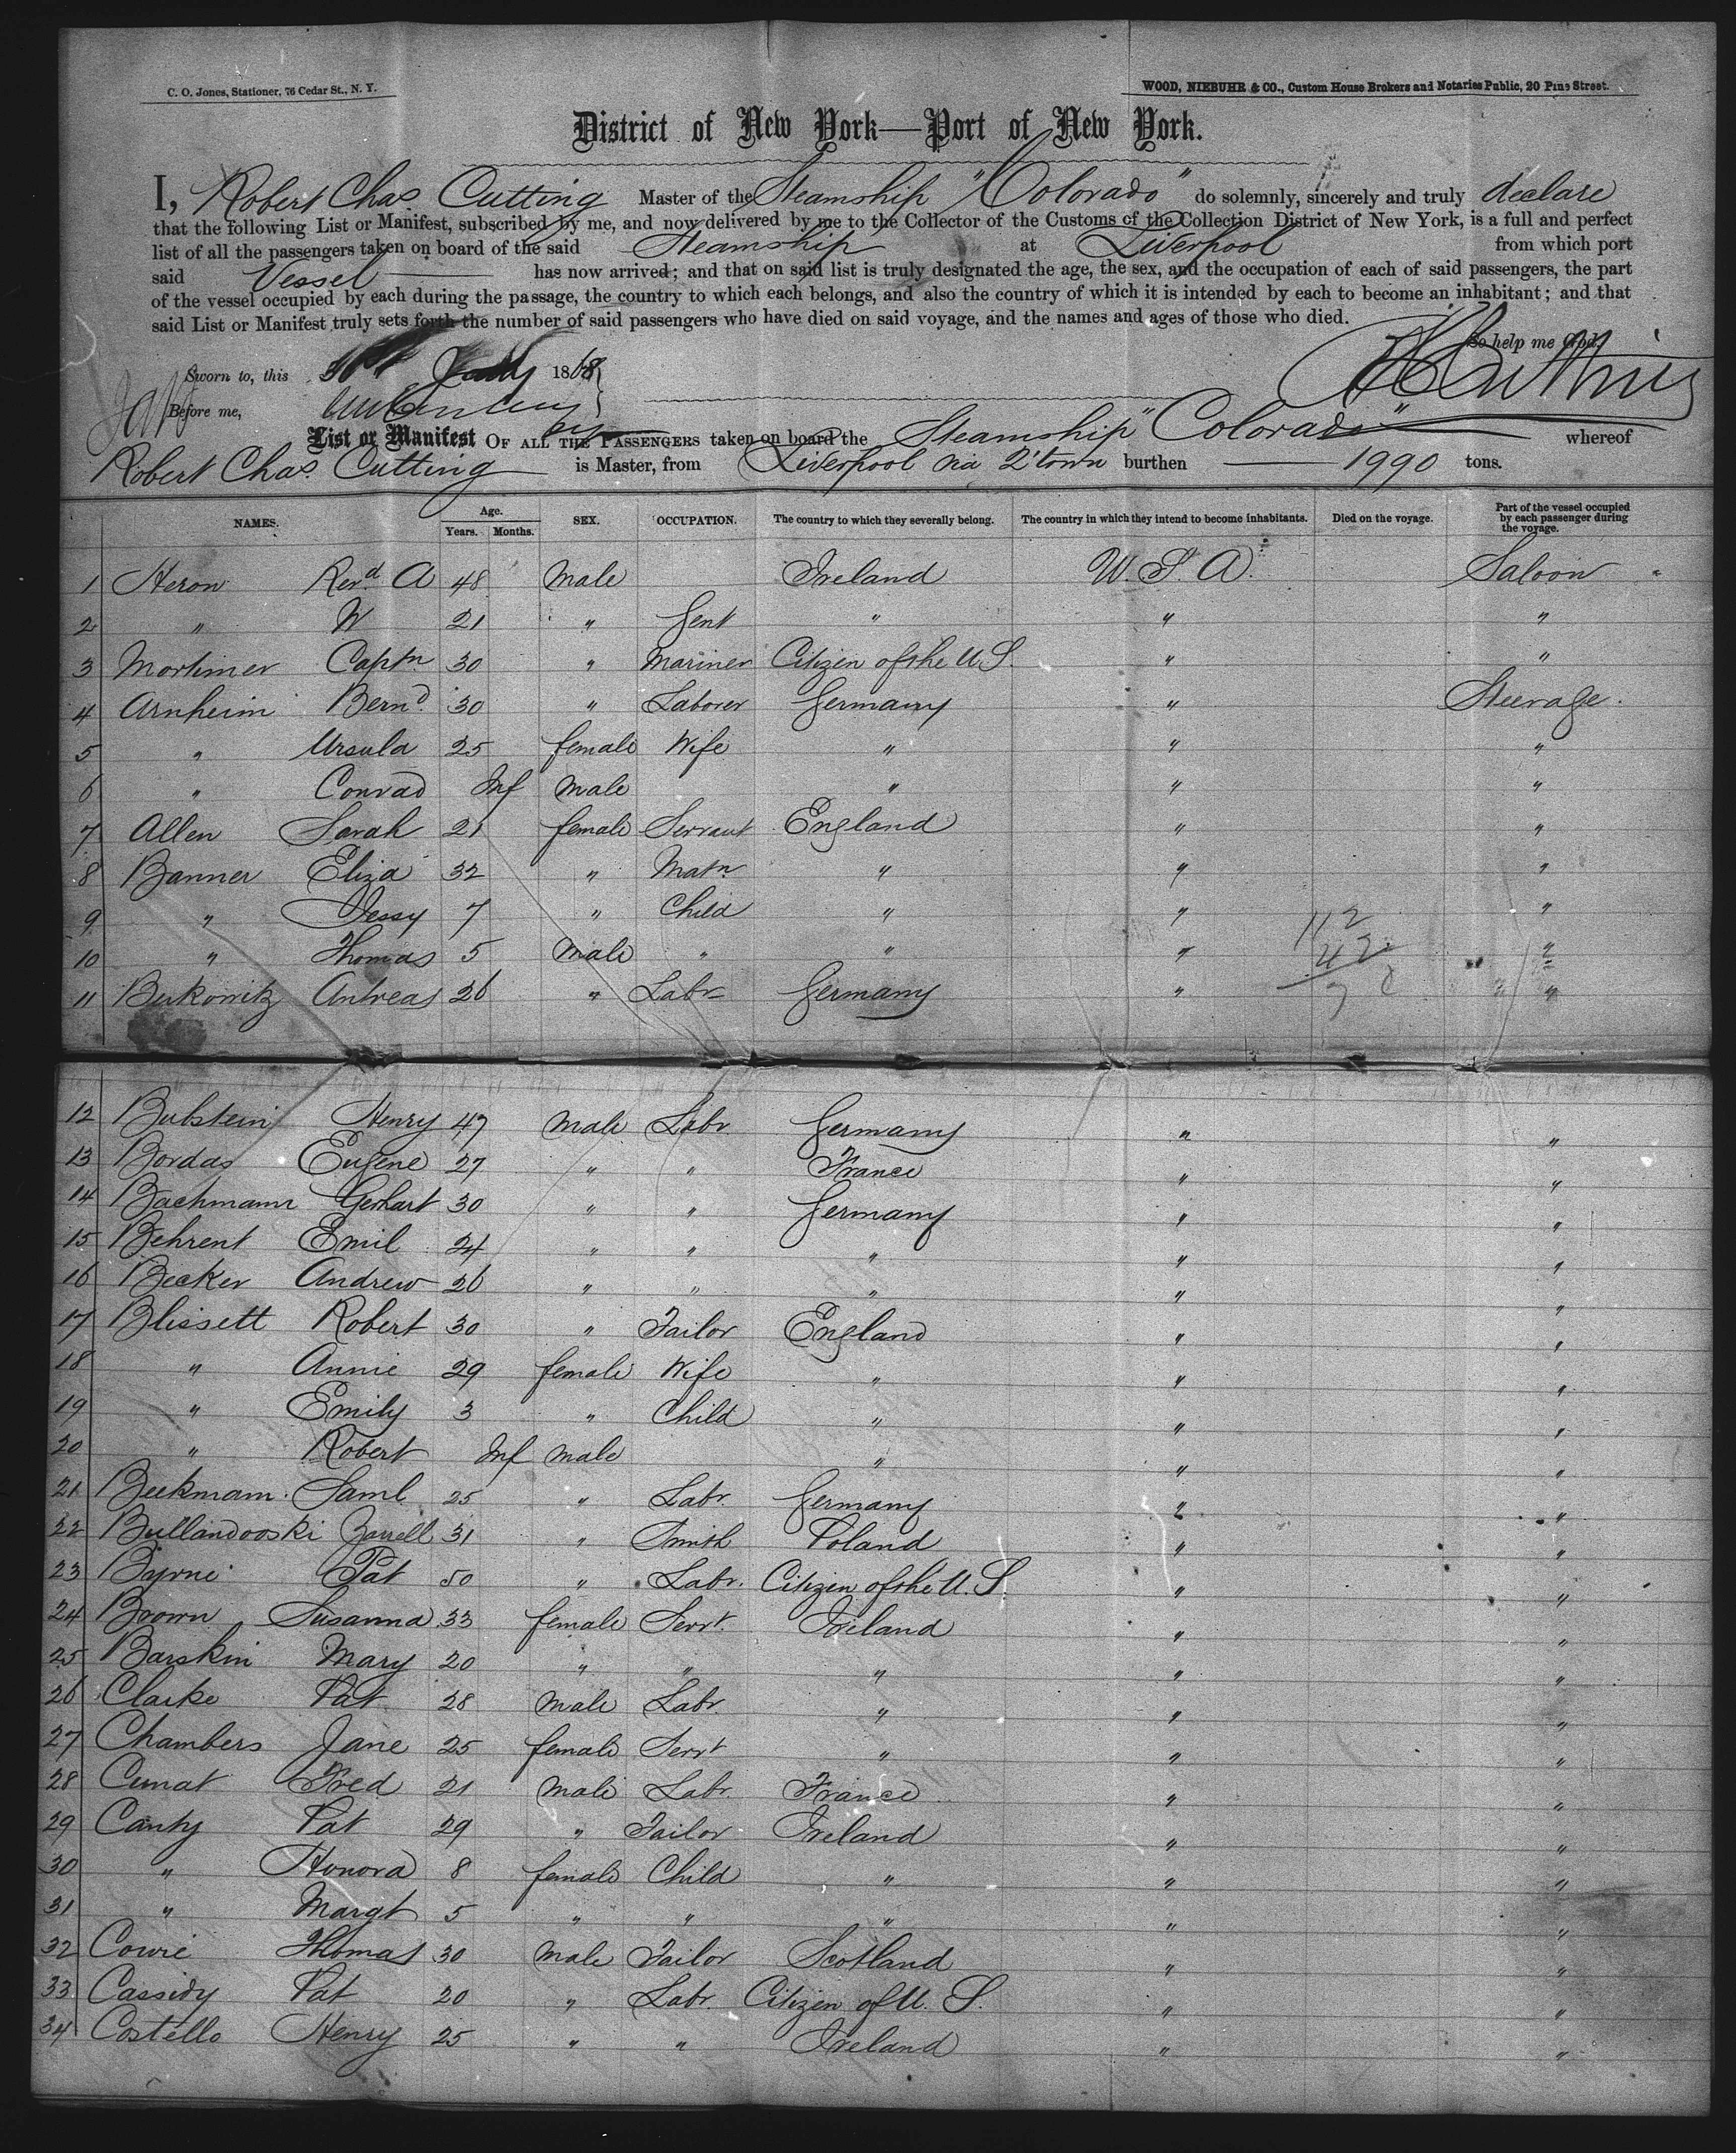 C. O. Jones, Stationer, 76 Cedar St., N. Y.
WOOD, NIEBUHR & CO., Custom House Brokers and Notaries Public, 20 Pine Street.
District of New York—Port of New York.
I, Robert Chas. Cutting Master of the Steamship "Colorado" do solemnly, sincerely and truly declare
that the following List or Manifest, subscribed by me, and now delivered by me to the Collector of the Customs of the Collection District of New York, is a full and perfect
list of all the passengers taken on board of the said Steamship at Liverpool from which port
said Vessel has now arrived; and that on said list is truly designated the age, the sex, and the occupation of each of said passengers, the part
of the vessel occupied by each during the passage, the country to which each belongs, and also the country of which it is intended by each to become an inhabitant; and that
said List or Manifest truly sets forth the number of said passengers who have died on said voyage, and the names and ages of those who died.
So help me God.
Sworn to, this 1868
Before me,
List or Manifest OF ALL THE PASSENGERS taken on board the Steamship "Colorado" whereof
Robert Chas. Cutting is Master, from Liverpool via Q'town burthen 1990 tons.
NAMES. Age. Years. Months. SEX. OCCUPATION. The country to which they severally belong. The country in which they intend to become inhabitants. Died on the voyage. Part of the vessel occupied by each passenger during the voyage.
1 Heron Revd. A 48 Male Ireland U. S. A. Saloon
2 " W 21 " Gent " " "
3 Mortimer Captn 30 " Mariner Citizen of the U S. " "
4 Arnheim Bernd. 30 " Laborer Germany " Steerage.
5 " Ursula 25 female Wife " " "
6 " Conrad Inf Male " " "
7 Allen Sarah 21 female Servant England " "
8 Banner Eliza 32 " Matn " " "
9 " Jessy 7 " Child " " "
10 " Thomas 5 Male " " " "
11 Berkowitz Antreas 26 " Labr Germany " "
12 Bubstein Henry 47 Male Labr Germany " "
13 Bordas Eugene 27 " " France " "
14 Bachmann Gerhart 30 " " Germany " "
15 Behrent Emil 24 " " " " "
16 Becker Andrew 26 " " " " "
17 Blissett Robert 30 " Tailor England " "
18 " Annie 29 female Wife " " "
19 " Emily 3 " Child " " "
20 " Robert Inf male " " "
21 Beekmann Saml 25 " Labr. Germany " "
22 Bullandooski 31 " Smith Poland " "
23 Byrne Pat 50 " Labr. Citizen of the U. S. " "
24 Brown Susanna 33 female Servt. Ireland " "
25 Barskin Mary 20 " " " " "
26 Clarke Pat 28 Male Labr. " " "
27 Chambers Jane 25 female Servt " " "
28 Cunat Fred 21 Male Labr. France " "
29 Canty Pat 29 " Tailor Ireland " "
30 " Honora 8 female Child " " "
31 " Margt 5 " " " " "
32 Cowie Thomas 30 Male Tailor Scotland " "
33 Cassidy Pat 20 " Labr. Citizen of U. S. " "
34 Costello Henry 25 " " Ireland " "